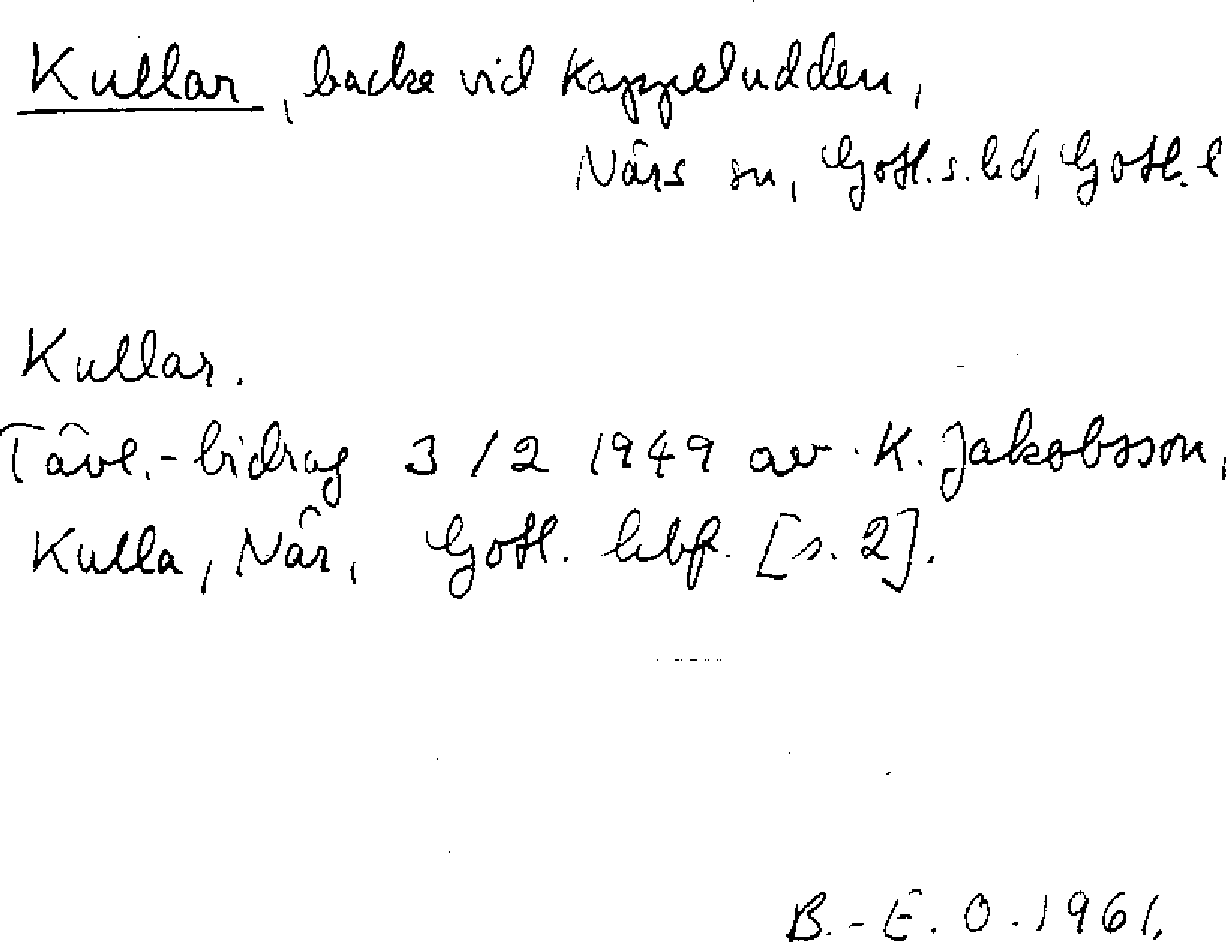 Kullar, backe vid Kappeludden,
Närs sn, Gotl. s. hd, Gotl. l
Kullar.
Tävl.-bidrag 3/2 1949 av K. Jakobsson,
Kulla, När, Gotl. hbf. [s. 2].
B.-E. O. 1961.